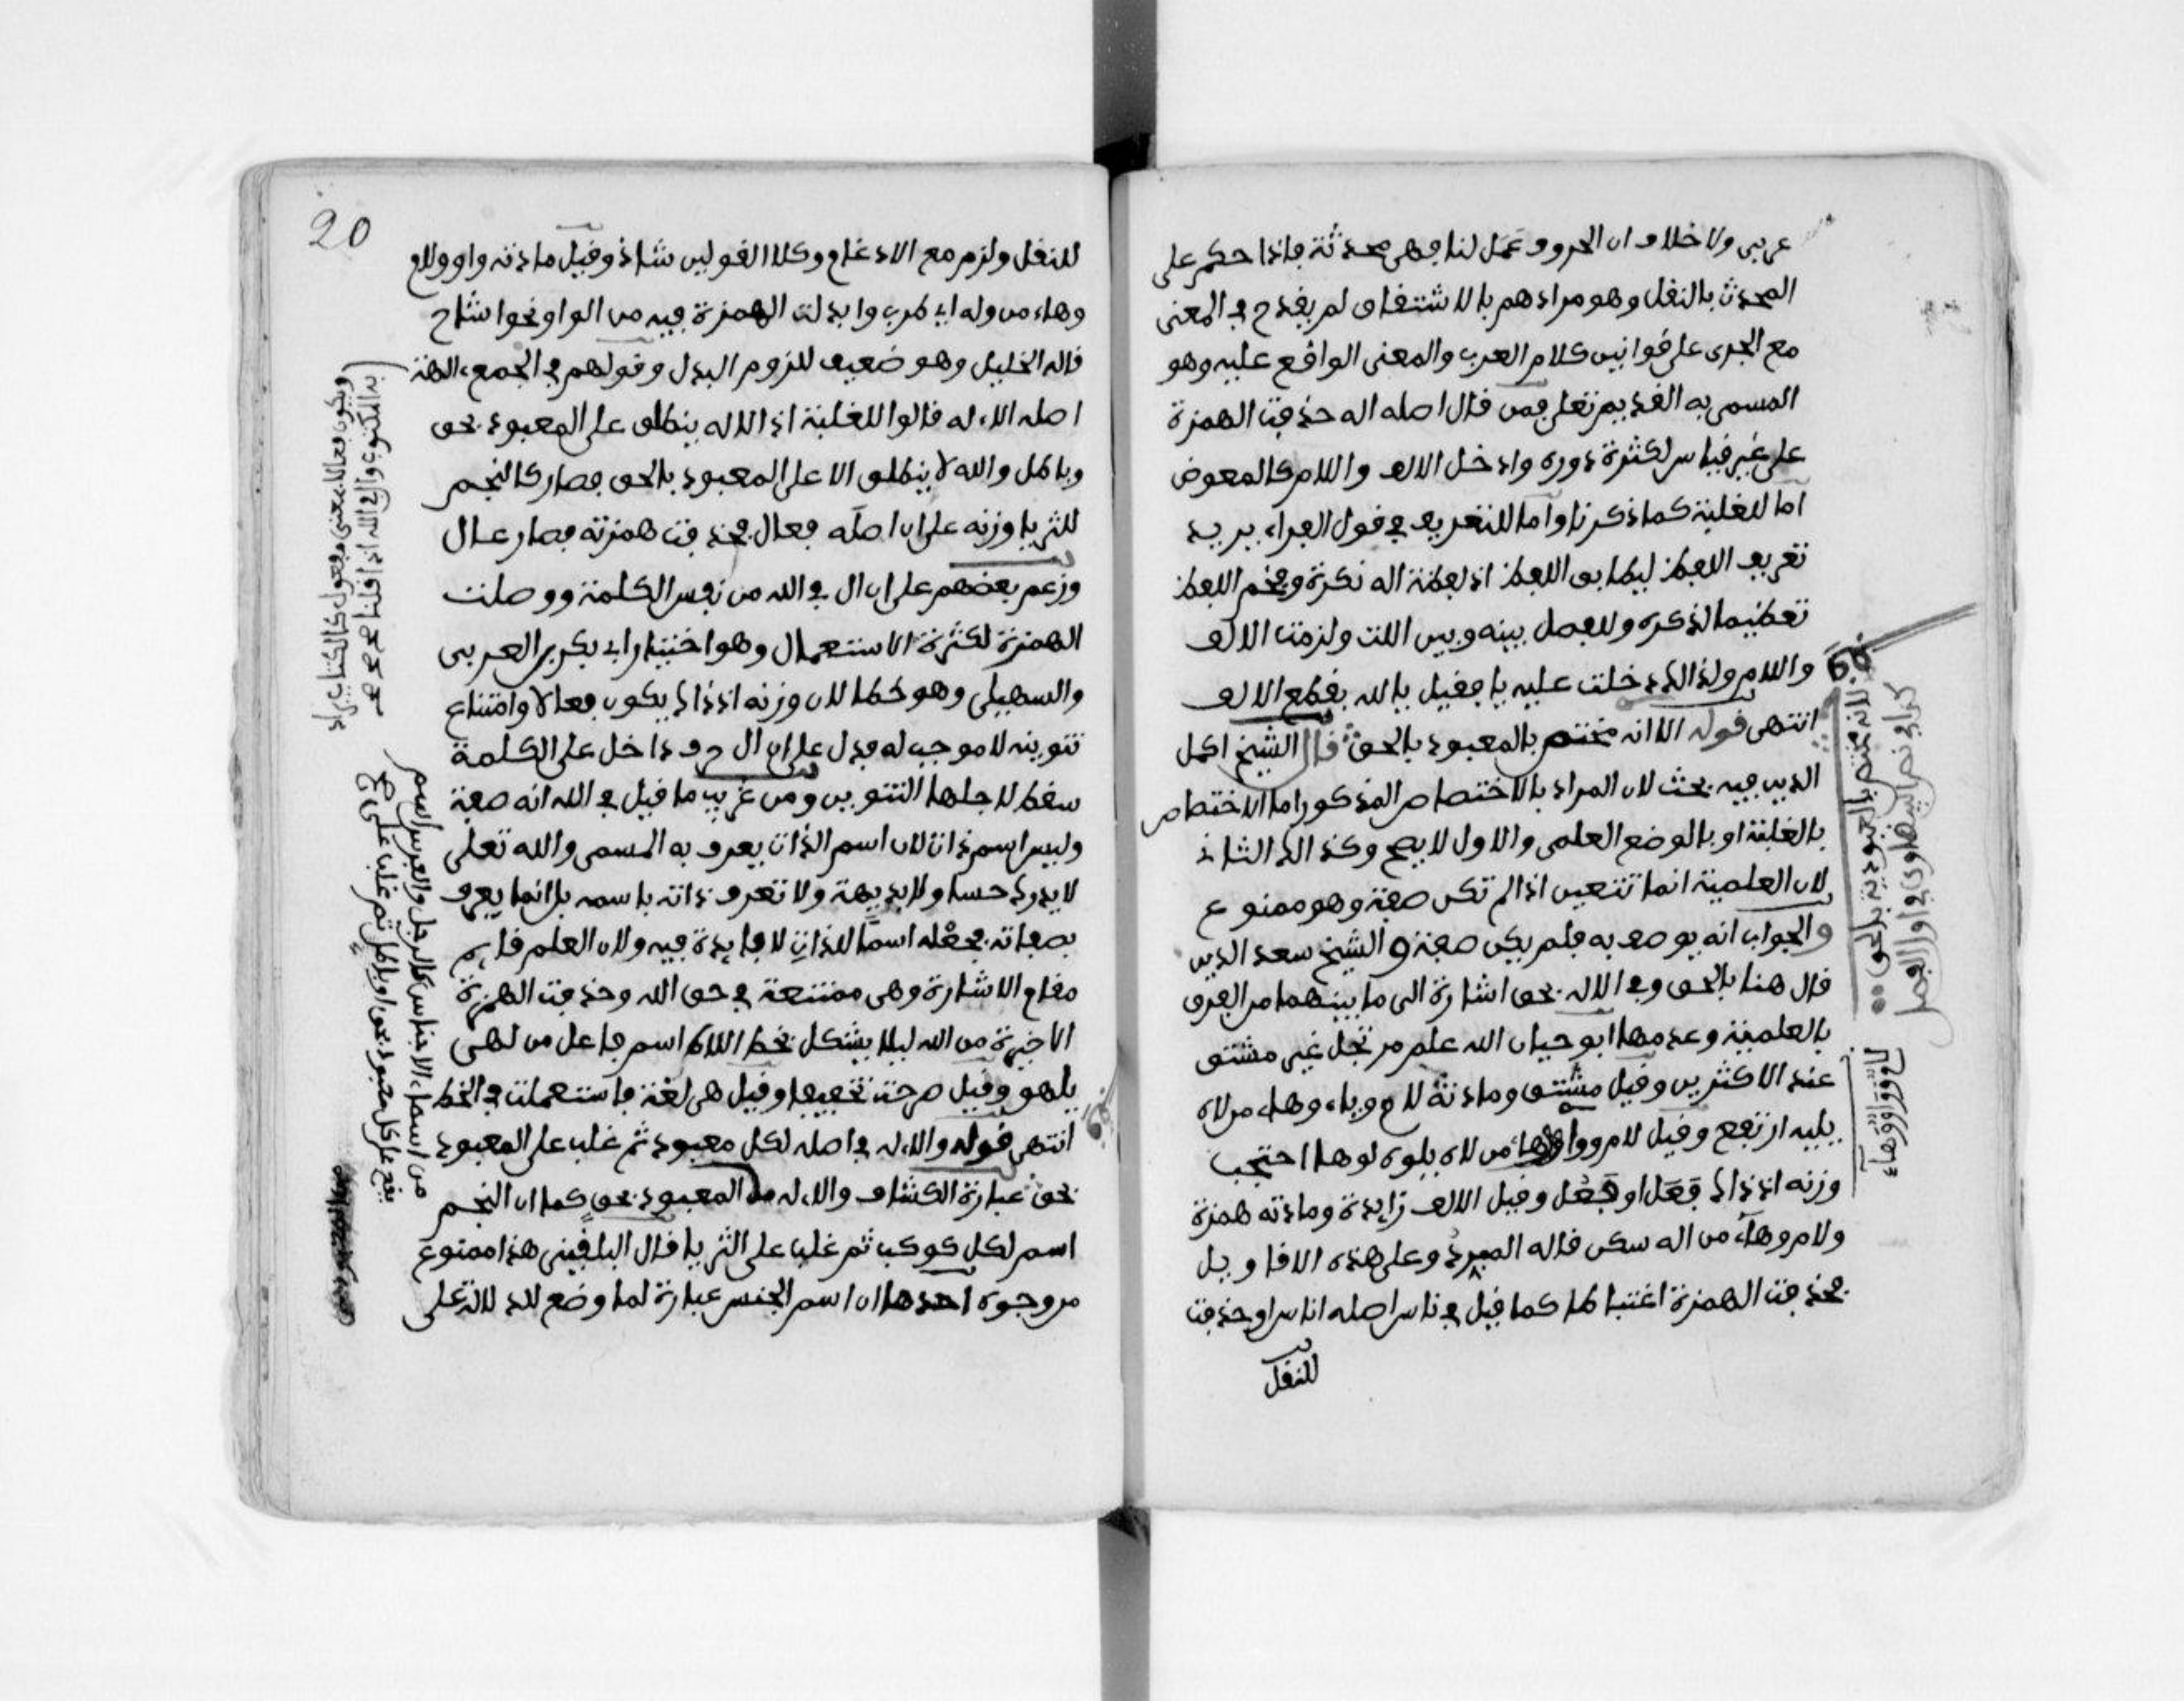 عربي ولا خلاف ان الحروف عمل لنا فهي محدثة فاذا حكم على
المحدث بالنقل وهو مرادهم بالاشتقاق لم يقدح في المعنى
مع الجرى على قوانين كلام العرب والمعنى الواقع عليه وهو
المسمى به القديم تعلى فمن قال اصله اله حذفت الهمزة
على غير قياس لكثرة دوره وادخل الالف واللام كالمعوض
اما للغلبة كما ذكرنا واما للتعريف في قول الفراء يريد
تعريف اللفظ ليطابق اللفظ اذ لفظة اله نكرة وفخم اللفظ
تعظيما لذكره وللفصل بينه وبين اللت ولزمت الالف
واللام ولذالك دخلت عليه يا فقيل يا الله بقطع الالف
انتهى قوله الا انه مختص بالمعبود بالحق قال الشيخ اكمل
الدين فيه بحث لان المراد بالاختصاص المذكور اما الاختصاص
بالغلبة او بالوضع العلمي والاول لا يصح وكذالك الثاني
لان العلمية انما تتعين اذا لم تكن صفة وهو ممنوع
والجواب انه يوصف به فلم يكن صفة والشيخ سعد الدين
قال هنا بالحق وفي الاله بحق اشارة الى ما بينهما من الفرق
بالعلمية وعدمها ابو حيان الله علم مرتجل غير مشتق
عند الاكثرين وقيل مشتق ومادته لام وياء وهاء من لاه
يليه ارتفع وقيل لام وواو وهاء من لاه يلوه لوها احتجب
وزنه اذ ذاك فَعَل او فَعِل وقيل الالف زايدة ومادته همزة
ولام وهاء من اله سكن قاله المبرد وعلى هذه الاقاويل
فحذفت الهمزة اغتباطا كما قيل في ناس اصله اناس او حذفت
للنقل
لانه مختص بالمعبودية بالحق
كذا في نص البيضاوي في اول الفصل
لام وواو وهاء
20
للنقل ولزم مع الادغام وكلا القولين شاذ وقيل مادته واو ولام
وهاء من وله اي طرب وابدلت الهمزة فيه من الواو نحو اشاح
قاله الخليل وهو ضعيف للزوم البدل وقولهم في الجمع ءالهة
اصله الاءله قالوا للغلبة اذ الاله ينطلق على المعبود بحق
وباطل والله لا ينطلق الا على المعبود بالحق فصار كالنجم
للثريا وزنه على ان اصله فعال فحذفت همزته فصار عال
وزعم بعضهم على ان ال في الله من نفس الكلمة ووصلت
الهمزة لكثرة الاستعمال وهو اختيار ابي بكر بن العربي
والسهيلي وهو خطا لان وزنه اذ ذاك يكون فعالا وامتناع
تنوينه لا موجب له فدل على ان ال حرف داخل على الكلمة
سقط لاجلها التنوين ومن غريب ما قيل في الله انه صفة
وليس اسم ذات لان اسم الذات يعرف به المسمى والله تعلى
لا يدرك حسا ولا بديهة ولا تعرف ذاته باسمه بل انما يعرف
بصفاته فجعله اسما للذات لا فايدة فيه ولان العلم قايم
مقام الاشارة وهي ممتنعة في حق الله وحذفت الهمزة
الاخيرة من الله ليلا يشكل بخط اللاه اسم فاعل من لهى
يلهو وقيل طرحت تخفيفا وقيل هي لغة فاستعملت في الخط
انتهى قوله والاله في اصله لكل معبود ثم غلب على المعبود
بحق عبارة الكشاف والاله من المعبود بحق كما ان النجم
اسم لكل كوكب ثم غلب على الثريا قال البلقيني هذا ممنوع
من وجوه احدها ان اسم الجنس عبارة لما وضع للدلالة على
ويكون فعالا بمعنى مفعول كالكتاب يراد
به المكتوب وال في الله اذا قلنا
من اسماء الاجناس كالرجل والفرس اسم
يقع على كل معبود بحق او باطل ثم غلب على